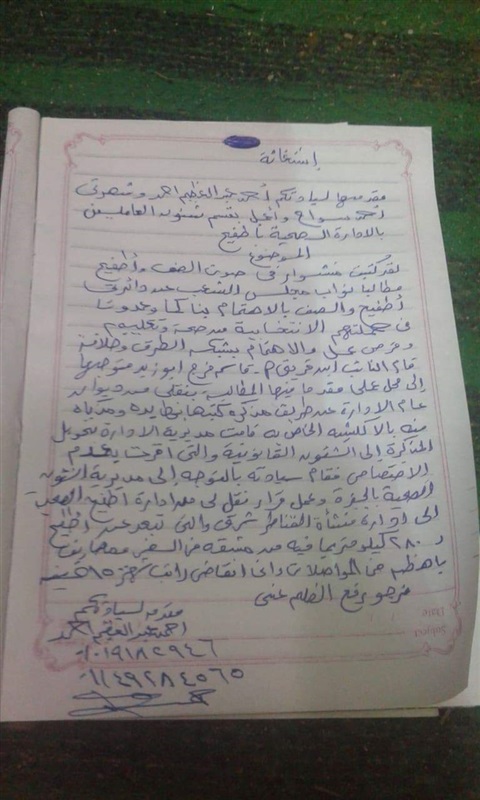 إستغاثة
مقدمها لسيادتكم أحمد عبد العظيم احمد وشهرتى
احمد سواح وأعمل بقسم شئون العاملين
بالادارة الصحية بأطفيح
الموضوع
لقد كتبت منشور فى صوت الصف وأطفيح
مطالبا نواب مجلس الشعب عن دائرتى
أطفيح والصف بالاهتمام بنا كما وعدونا
فى حملتهم الانتخابية من صحة وتعليم
وفرص عمل والاهتمام بشبكة الطرق وخلافه
قام النائب السيد فريق م - قاسم فرج ابوزيد متوجها
إلى محل عملى مقدما بينها المطالب بنقلى من ديوان
عام الادارة عن طريق مذكرة كتبها بخط يده ومذياه
منه بالاكلشيه الخاص به قامت مديرية الادارة بتحويل
المذكرة إلى الشئون القانونية والتى أقرت بعدم
الاختصاص فقام سيادته بالتوجه إلى مديرية الشئون
الصحية بالجيزة وعمل قرار نقل لى من ادارة اطفيح الصحية
إلى ادارة منشأة القناطر شرقى والتى تبعد عن أطفيح
ب ٢٨٠ كيلو متر بما فيه من مشقة فى السفر ومصاريف
باهظة من المواصلات وانى اتقاضى راتب شهرى ٥٦٥ جنيه
نرجو رفع الظلم عنى
مقدمه لسيادتكم
احمد عبد العظيم احمد
٠١٠١٩١٨٢٩٤٦
٠١١٤٩٢٨٤٥٦٥
Date
Subject